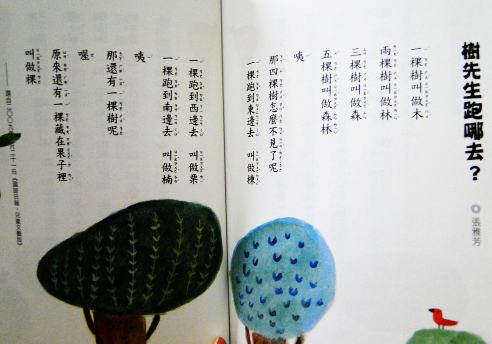 樹先生跑哪去？
◎張雅芳
一棵樹叫做木
兩棵樹叫做林
三棵樹叫做森
五棵樹叫做森林
咦
那四棵樹怎麼不見了呢
一棵跑到東邊去　叫做棟
一棵跑到西邊去　叫做栗
一棵跑到南邊去　叫做楠
咦
那還有一棵樹呢
喔
原來還有一棵藏在果子裡
叫做棵